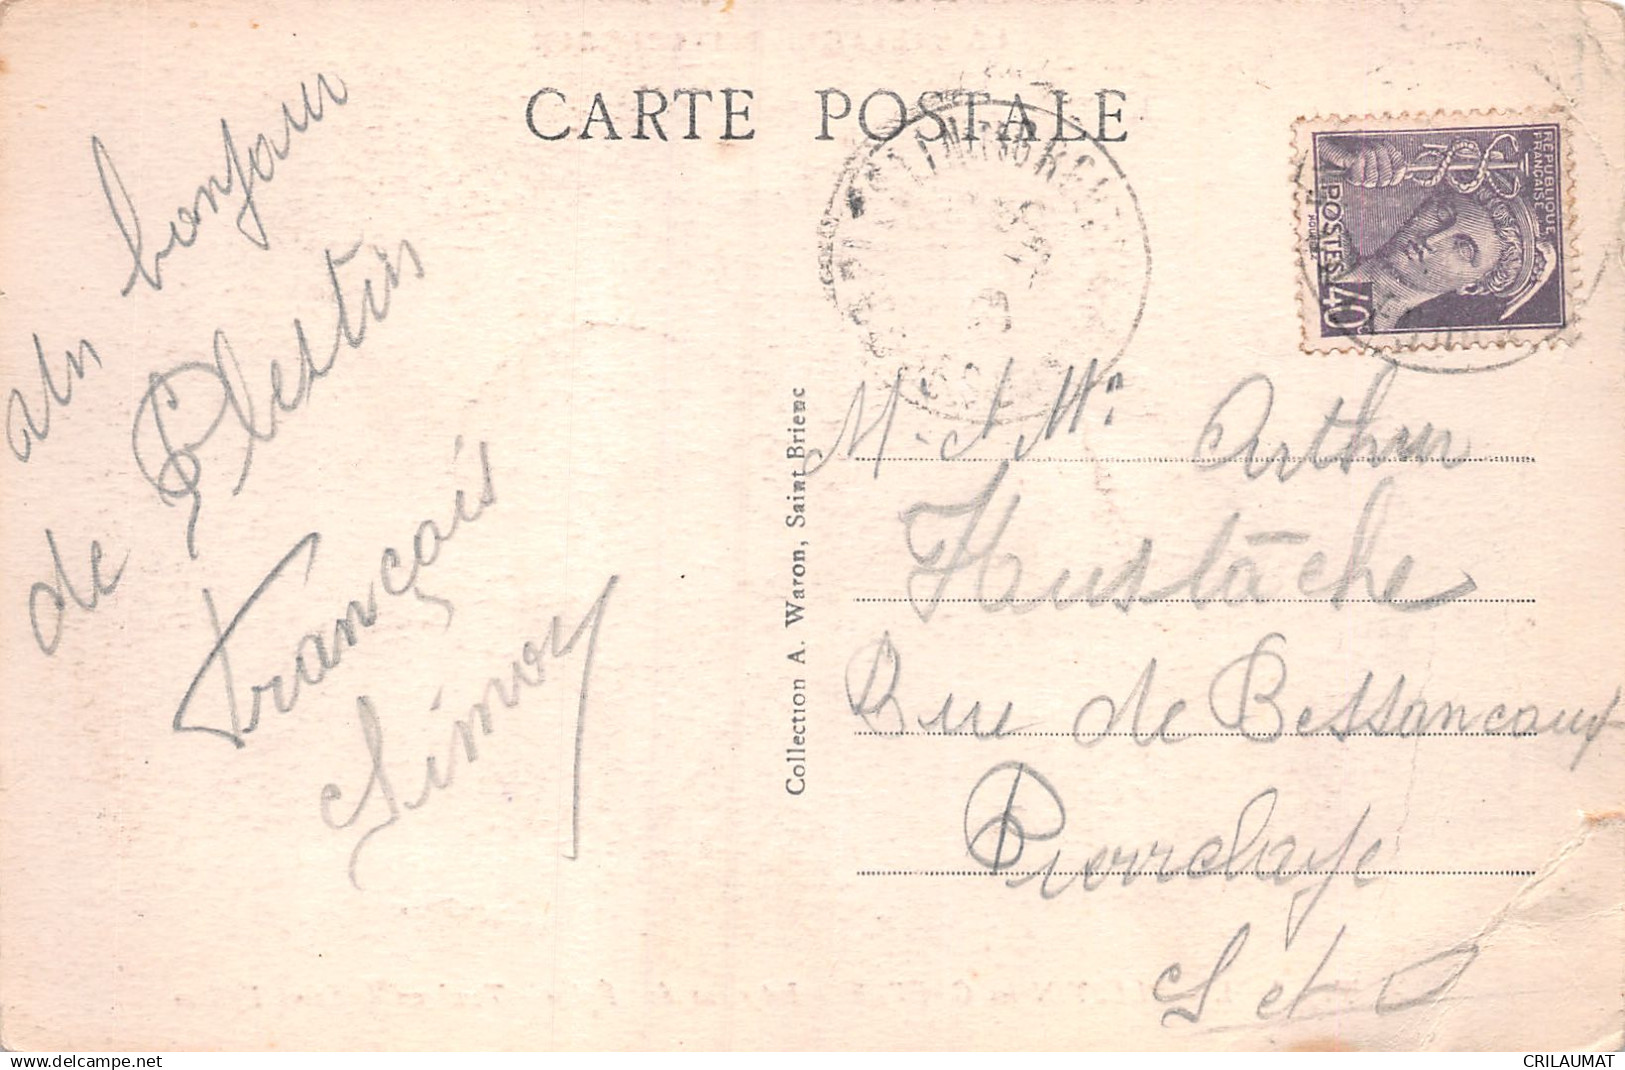 CARTE POSTALE
RÉPUBLIQUE
FRANÇAISE
POSTES
40
un bonjour
de Plestin
François
Simon
Collection A. Waron, Saint Brieuc
M. et Mme Arthur
Hustache
Rue de Bessancourt
Pierrelaye
S et O
www.delcampe.net
CRILAUMAT